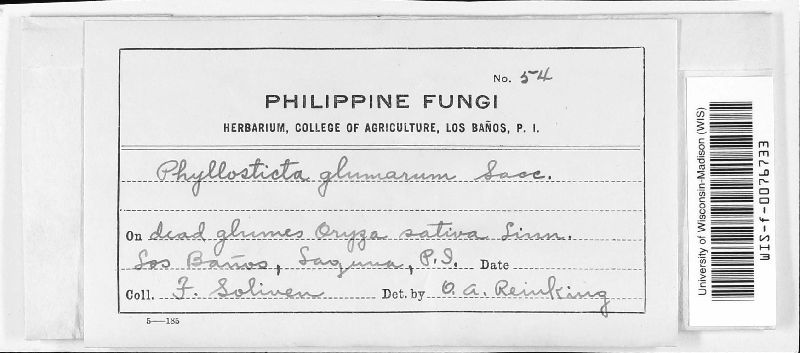 No. 54
PHILIPPINE FUNGI
HERBARIUM, COLLEGE OF AGRICULTURE, LOS BAÑOS, P. I.
Phyllosticta glumarum Sacc.
On dead glumes Oryza sativa Linn.
Los Baños, Laguna, P.I. Date
Coll. F. Soliven Det. by O. A. Reinking
5—185
University of Wisconsin-Madison (WIS)
WIS-f-0076733